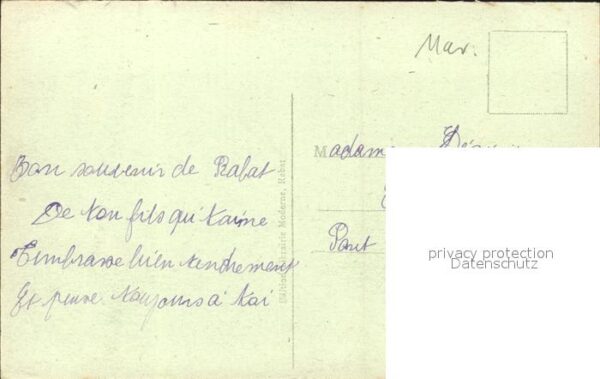 Mar.
Bon souvenir de Rabat
De ton fils qui t'aime
T'embrasse bien tendrement
Et pense toujours à toi
Madame
Pont
Moderne, Rabat
privacy protection
Datenschutz